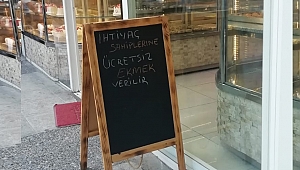 İHTİYAÇ
SAHİPLERİNE
ÜCRETSİZ
EKMEK
VERİLİR